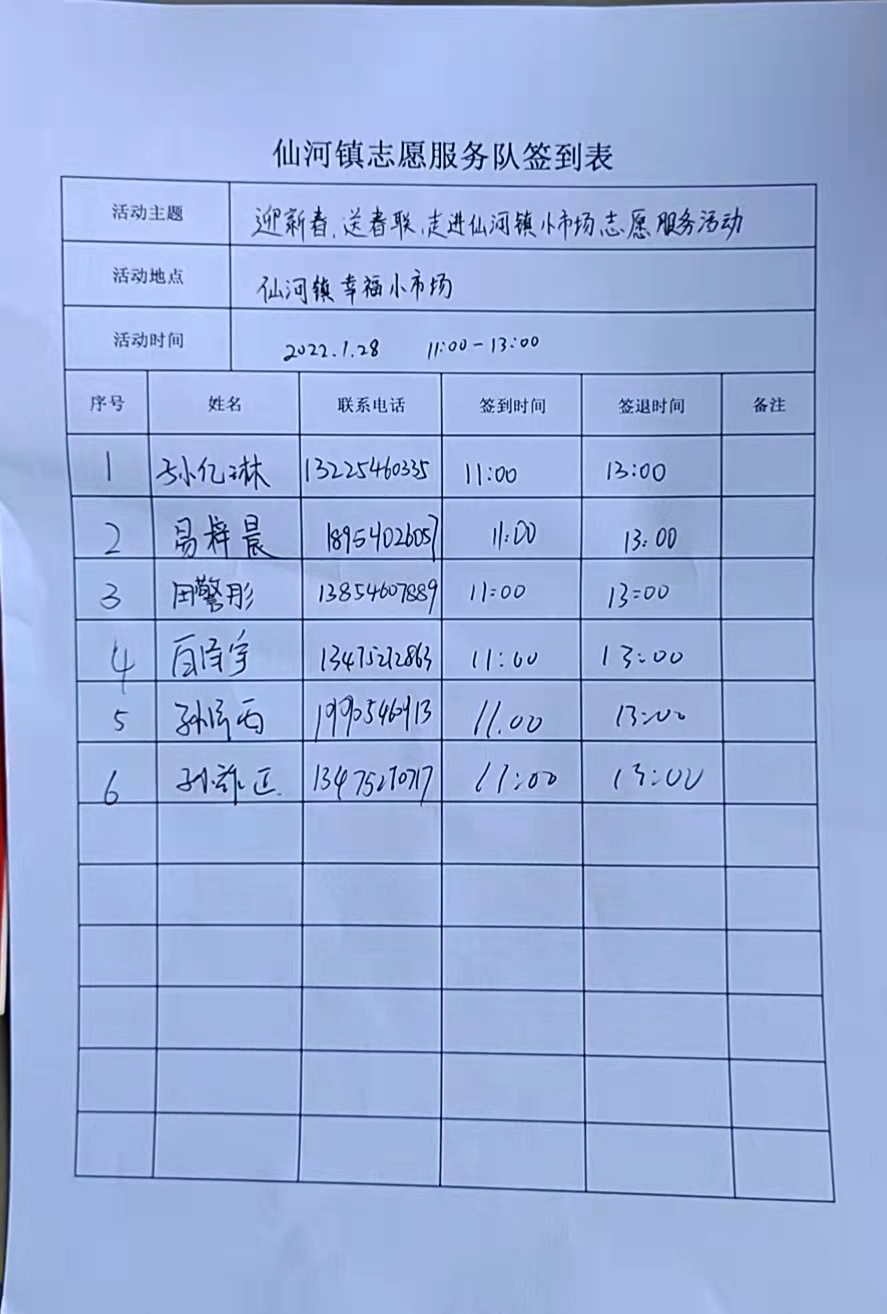 仙河镇志愿服务队签到表
活动主题 迎新春、送春联、走进仙河镇小市场志愿服务活动
活动地点 仙河镇幸福小市场
活动时间 2022.1.28 11:00-13:00
序号 姓名 联系电话 签到时间 签退时间 备注
1 孙亿琳 13225460335 11:00 13:00
2 易梓晨 18954026057 11:00 13:00
3 田警彤 13854607889 11:00 13:00
4 13475212863 11:00 13:00
5 11.00 13:00
6 13475270717 11:00 13:00